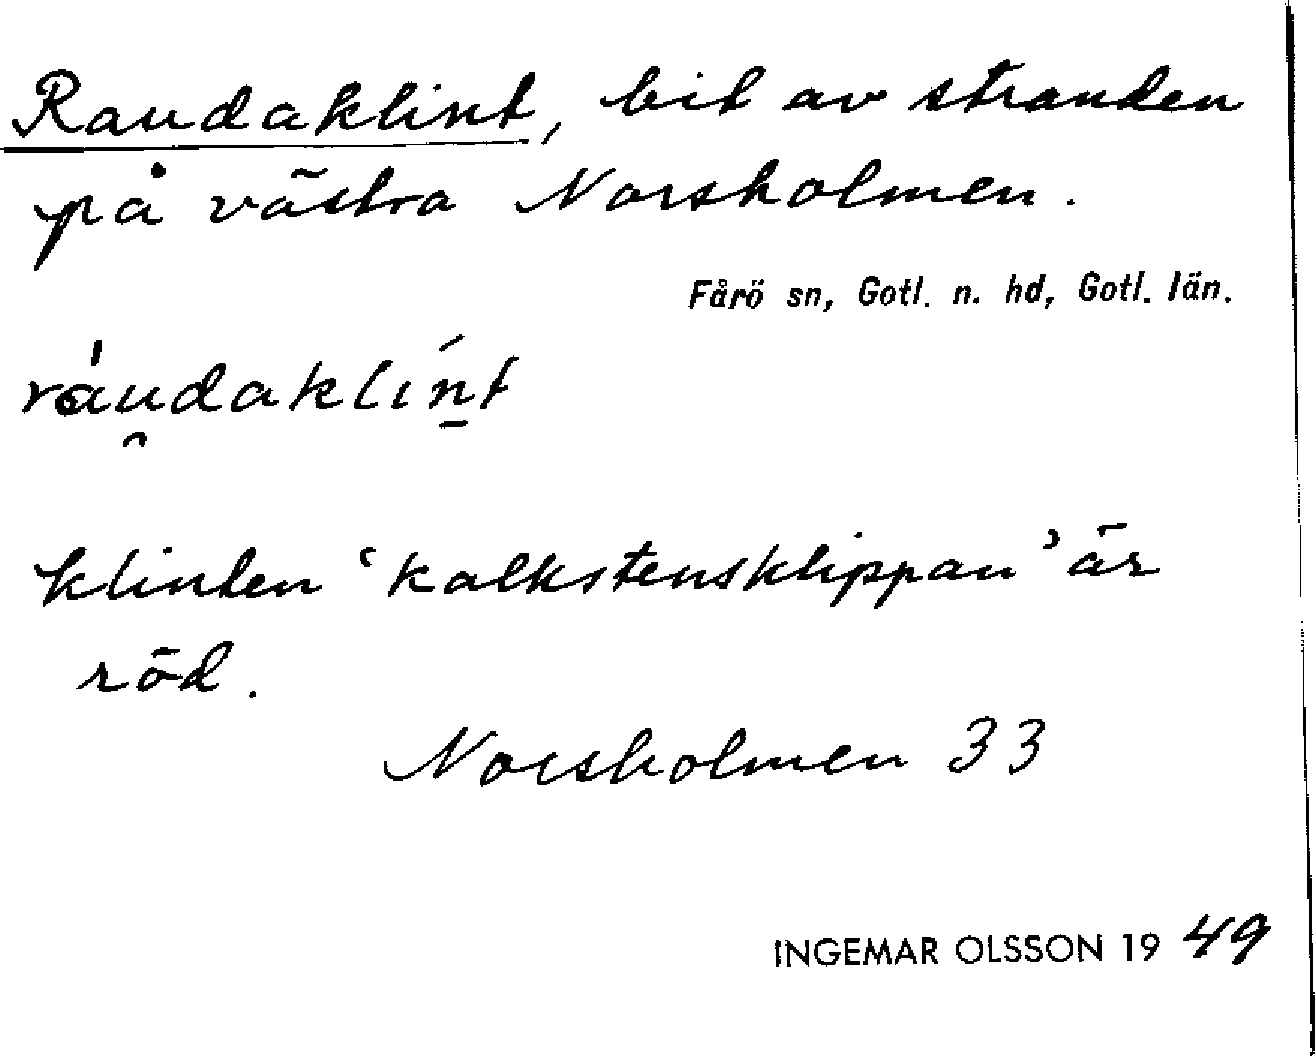 Raudaklint, bit av stranden
på västra Norsholmen.
Fårö sn, Gotl. n. hd, Gotl. län.
ráu̯daklín̠t
klinten ‘kalkstensklippan’ är
röd.
Norsholmen 33
INGEMAR OLSSON 19 49